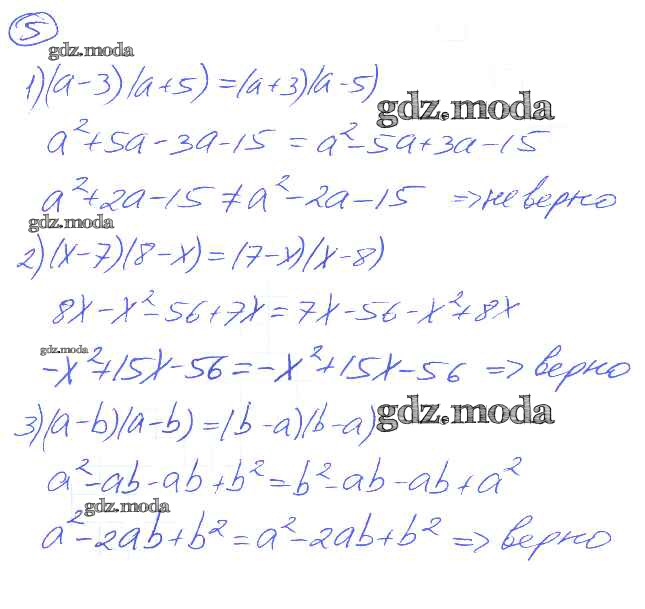 5
gdz.moda
1) (a-3)(a+5)=(a+3)(a-5)
gdz.moda
a²+5a-3a-15=a²-5a+3a-15
a²+2a-15≠a²-2a-15 => не верно
gdz.moda
2) (x-7)(8-x)=(7-x)(x-8)
8x-x²-56+7x=7x-56-x²+8x
gdz.moda
-x²+15x-56=-x²+15x-56 => верно
3) (a-b)(a-b)=(b-a)(b-a)
gdz.moda
a²-ab-ab+b²=b²-ab-ab+a²
gdz.moda
a²-2ab+b²=a²-2ab+b² => верно